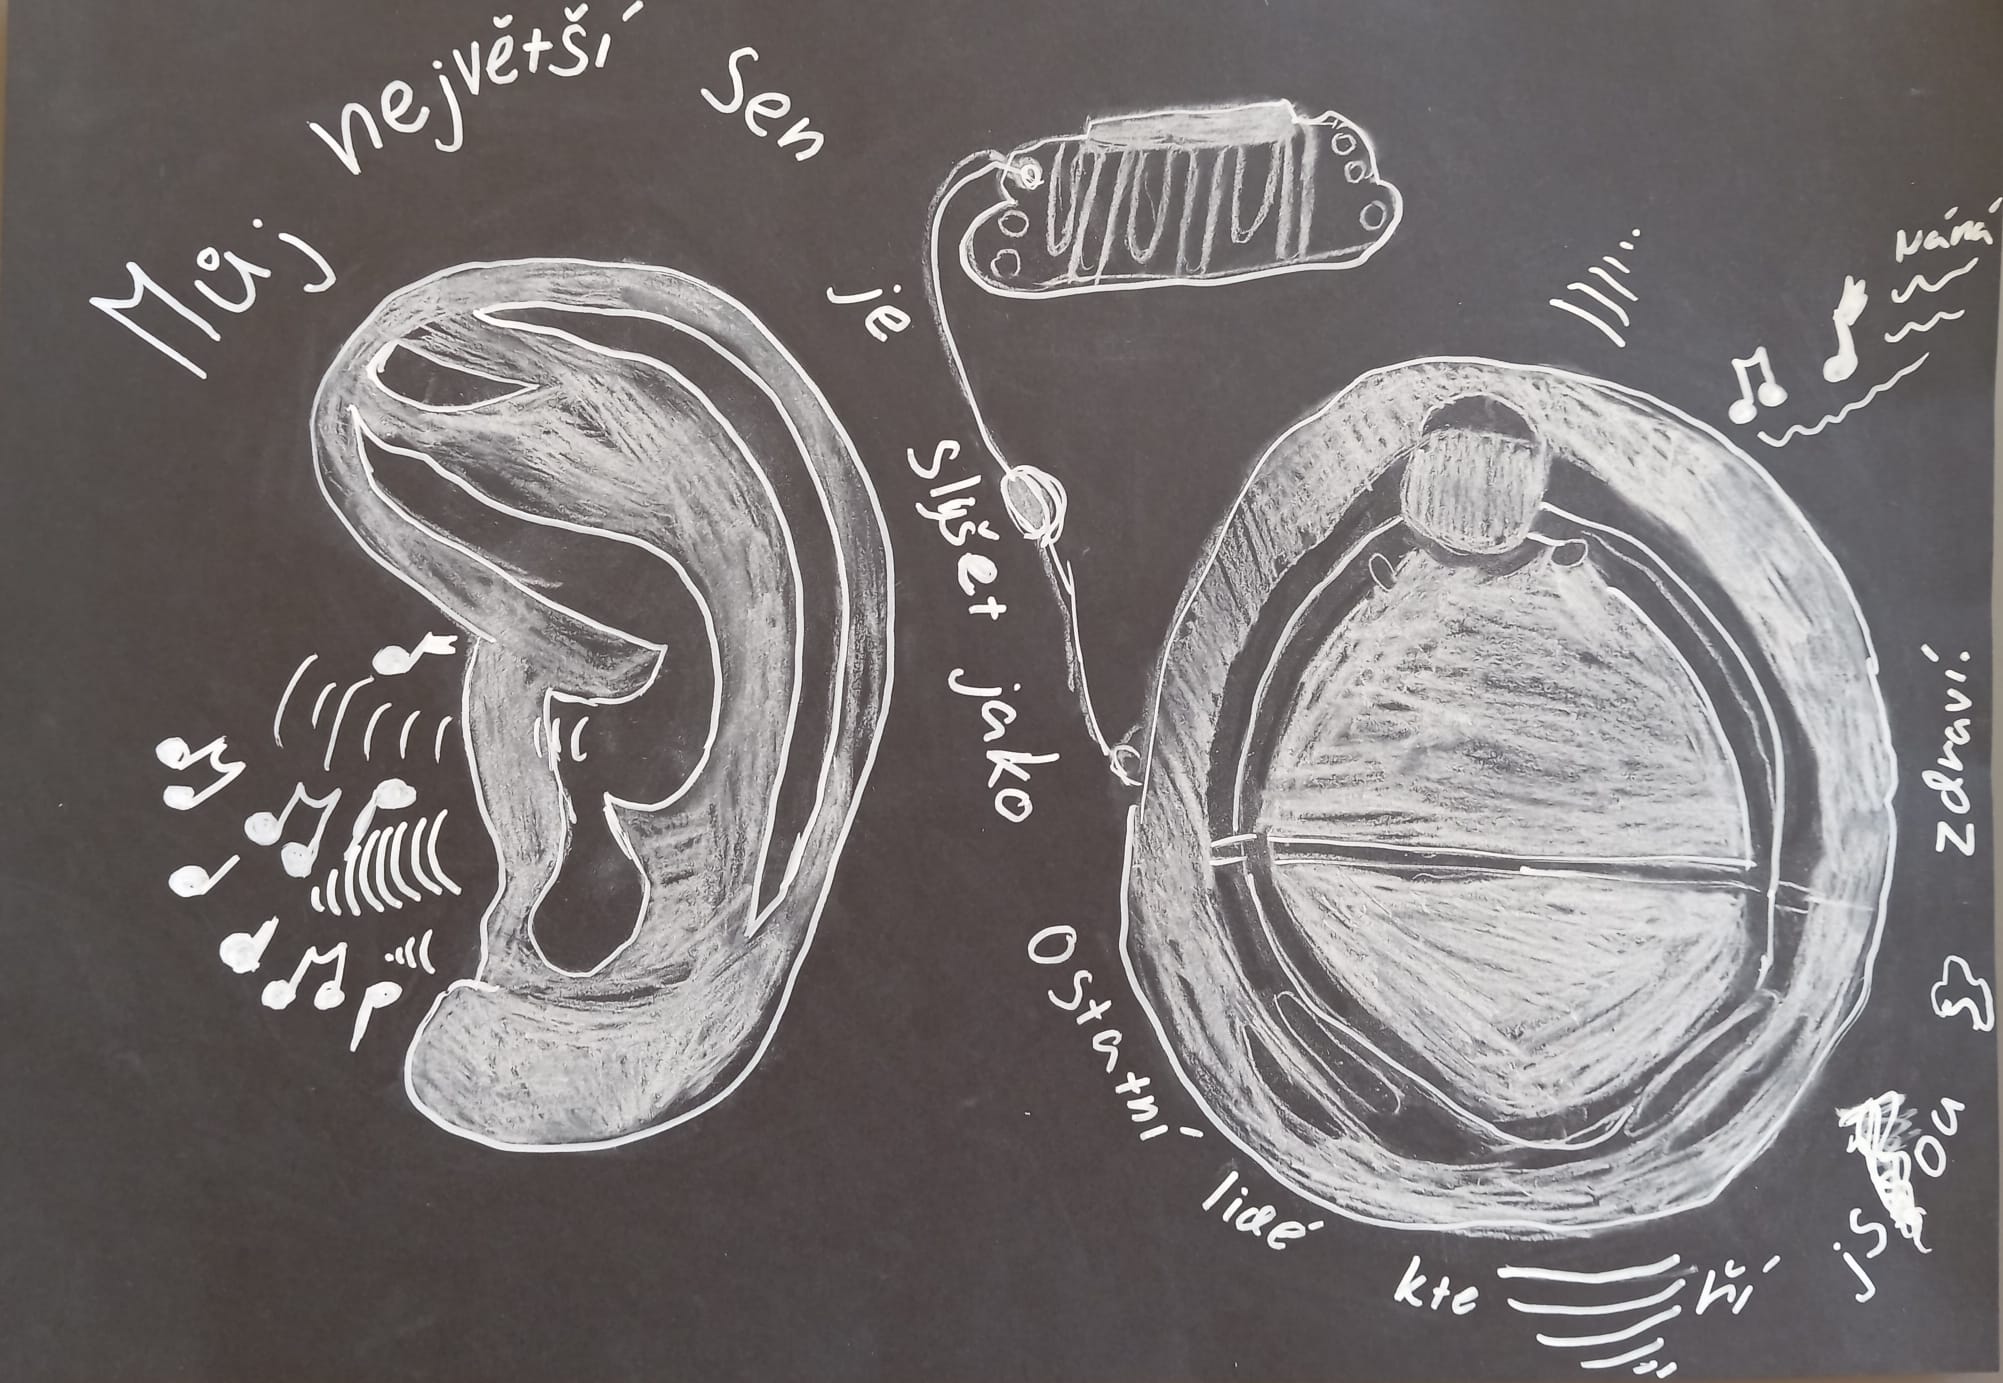 Můj největší sen je slyšet jako ostatní lidé kteří jsou zdraví.
Náná